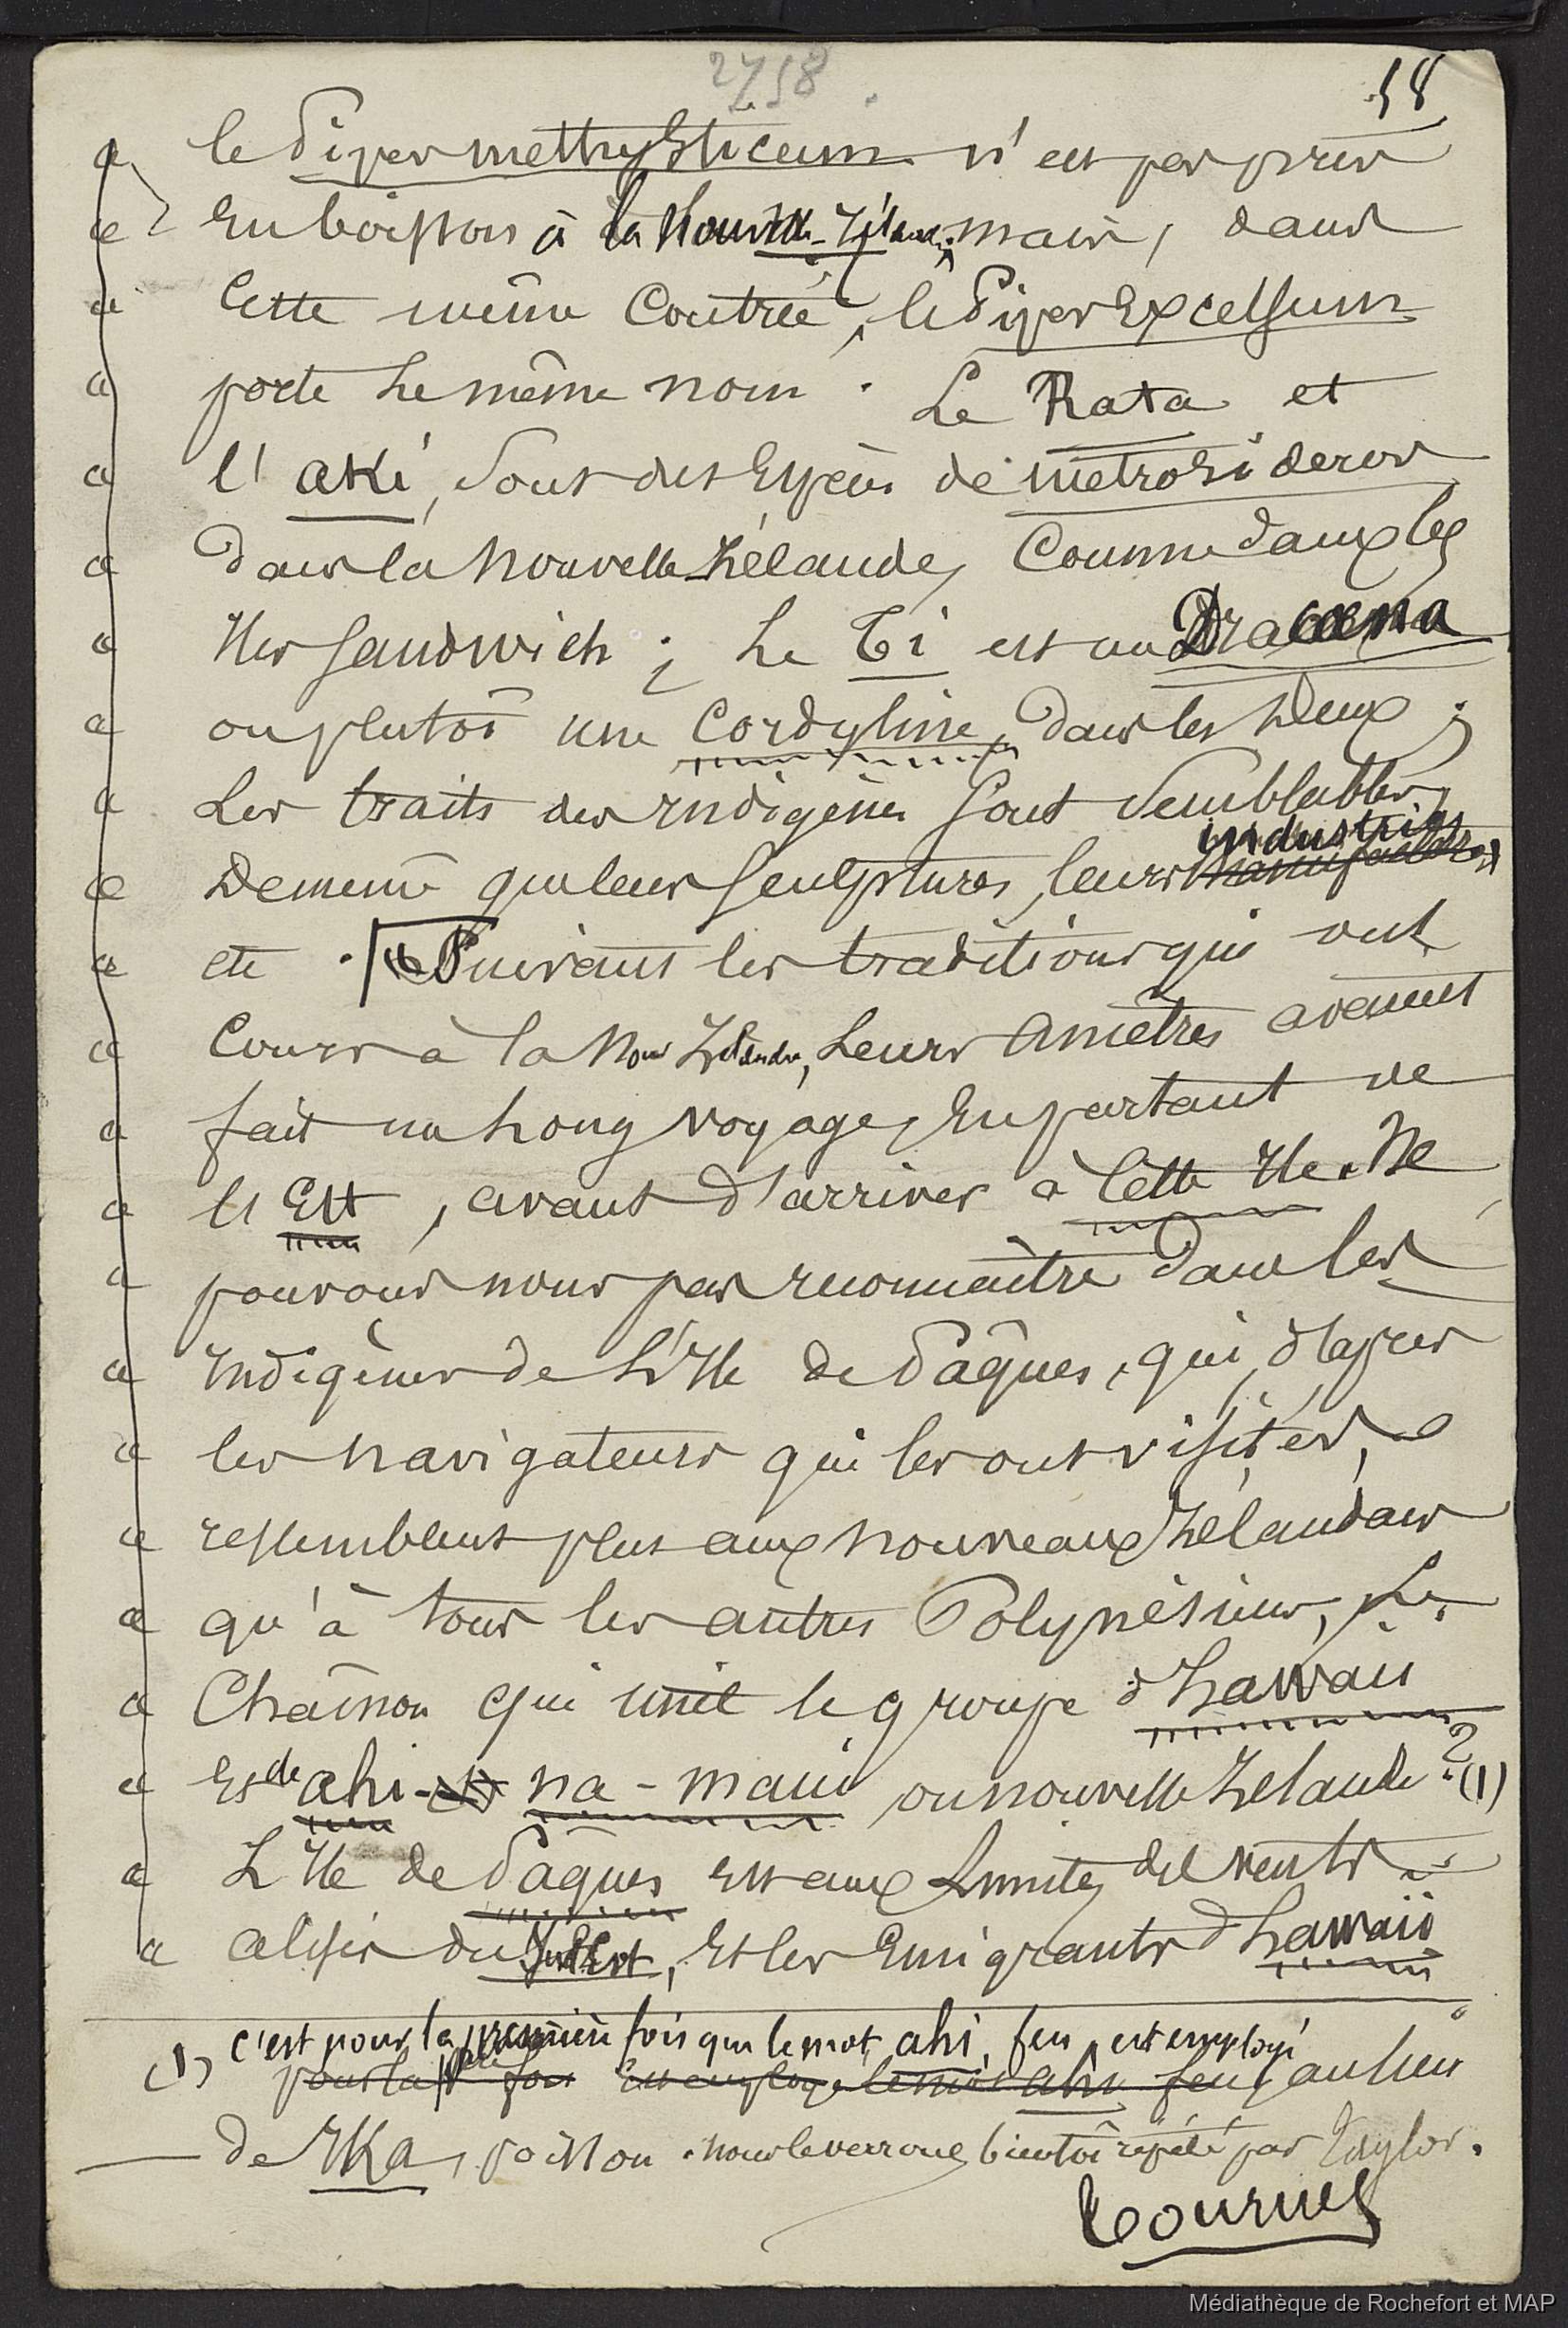 2758
58
« le Piper methysticum n'est pas pris
« en boisson à la Nouvelle-Zélande; mais, dans
« cette même contrée, le Piper Excelsum
« porte le même nom. Le Rata et
« l'aki, sont des espèces de metrosideros
« dans la Nouvelle-Zélande, comme dans les
« Iles Sandwich; Le Ti est un Dracæna
« ou plutôt une Cordyline, dans les deux;
« Les traits des indigènes sont semblables,
industries
« de même que leurs sculptures, leurs manufactures,
« etc. Suivant les traditions qui ont
« cours à la Nou Zélande, leurs ancêtres avaient
« fait un long voyage, en partant de
« l'Est, avant d'arriver à cette Ile. Ne
« pouvons nous pas reconnaître dans les
« indigènes de l'Ile de Pâques, qui, d'après
« les navigateurs qui les ont visités,
« ressemblent plus aux nouveaux Zélandais
« qu'à tous les autres Polynésiens, Le
« Chaînon qui unit le groupe d'hawaii
« Es de ahi-na-maui ou nouvelle Zelande? (1)
« L'Ile de Pâques est aux limites des vents
« alisés du Sud Est, et les émigrants d'hawaii
c'est pour la première fois que le mot ahi, feu, est employé
(1) pour la 1ère fois est employé le mot ahi feu, au lieu
de Ika, poisson. nous le verrons bientôt répété par Taylor.
tournez
Médiathèque de Rochefort et MAP